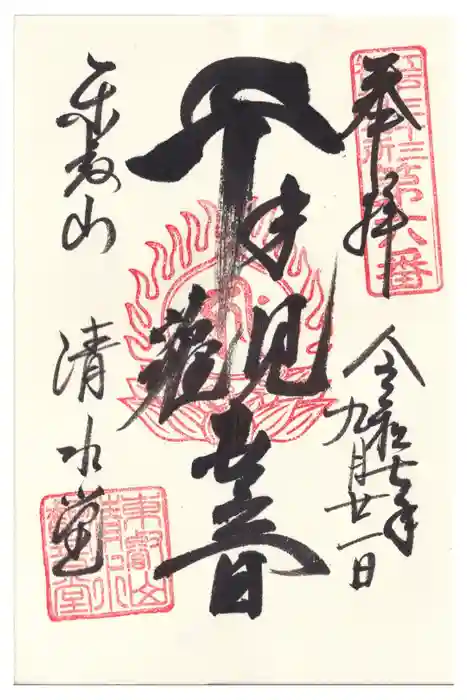 奉拝
第六番
令和七年
九月廿一日
千手觀世音
東叡山
清水堂
東叡山
清水
観音堂